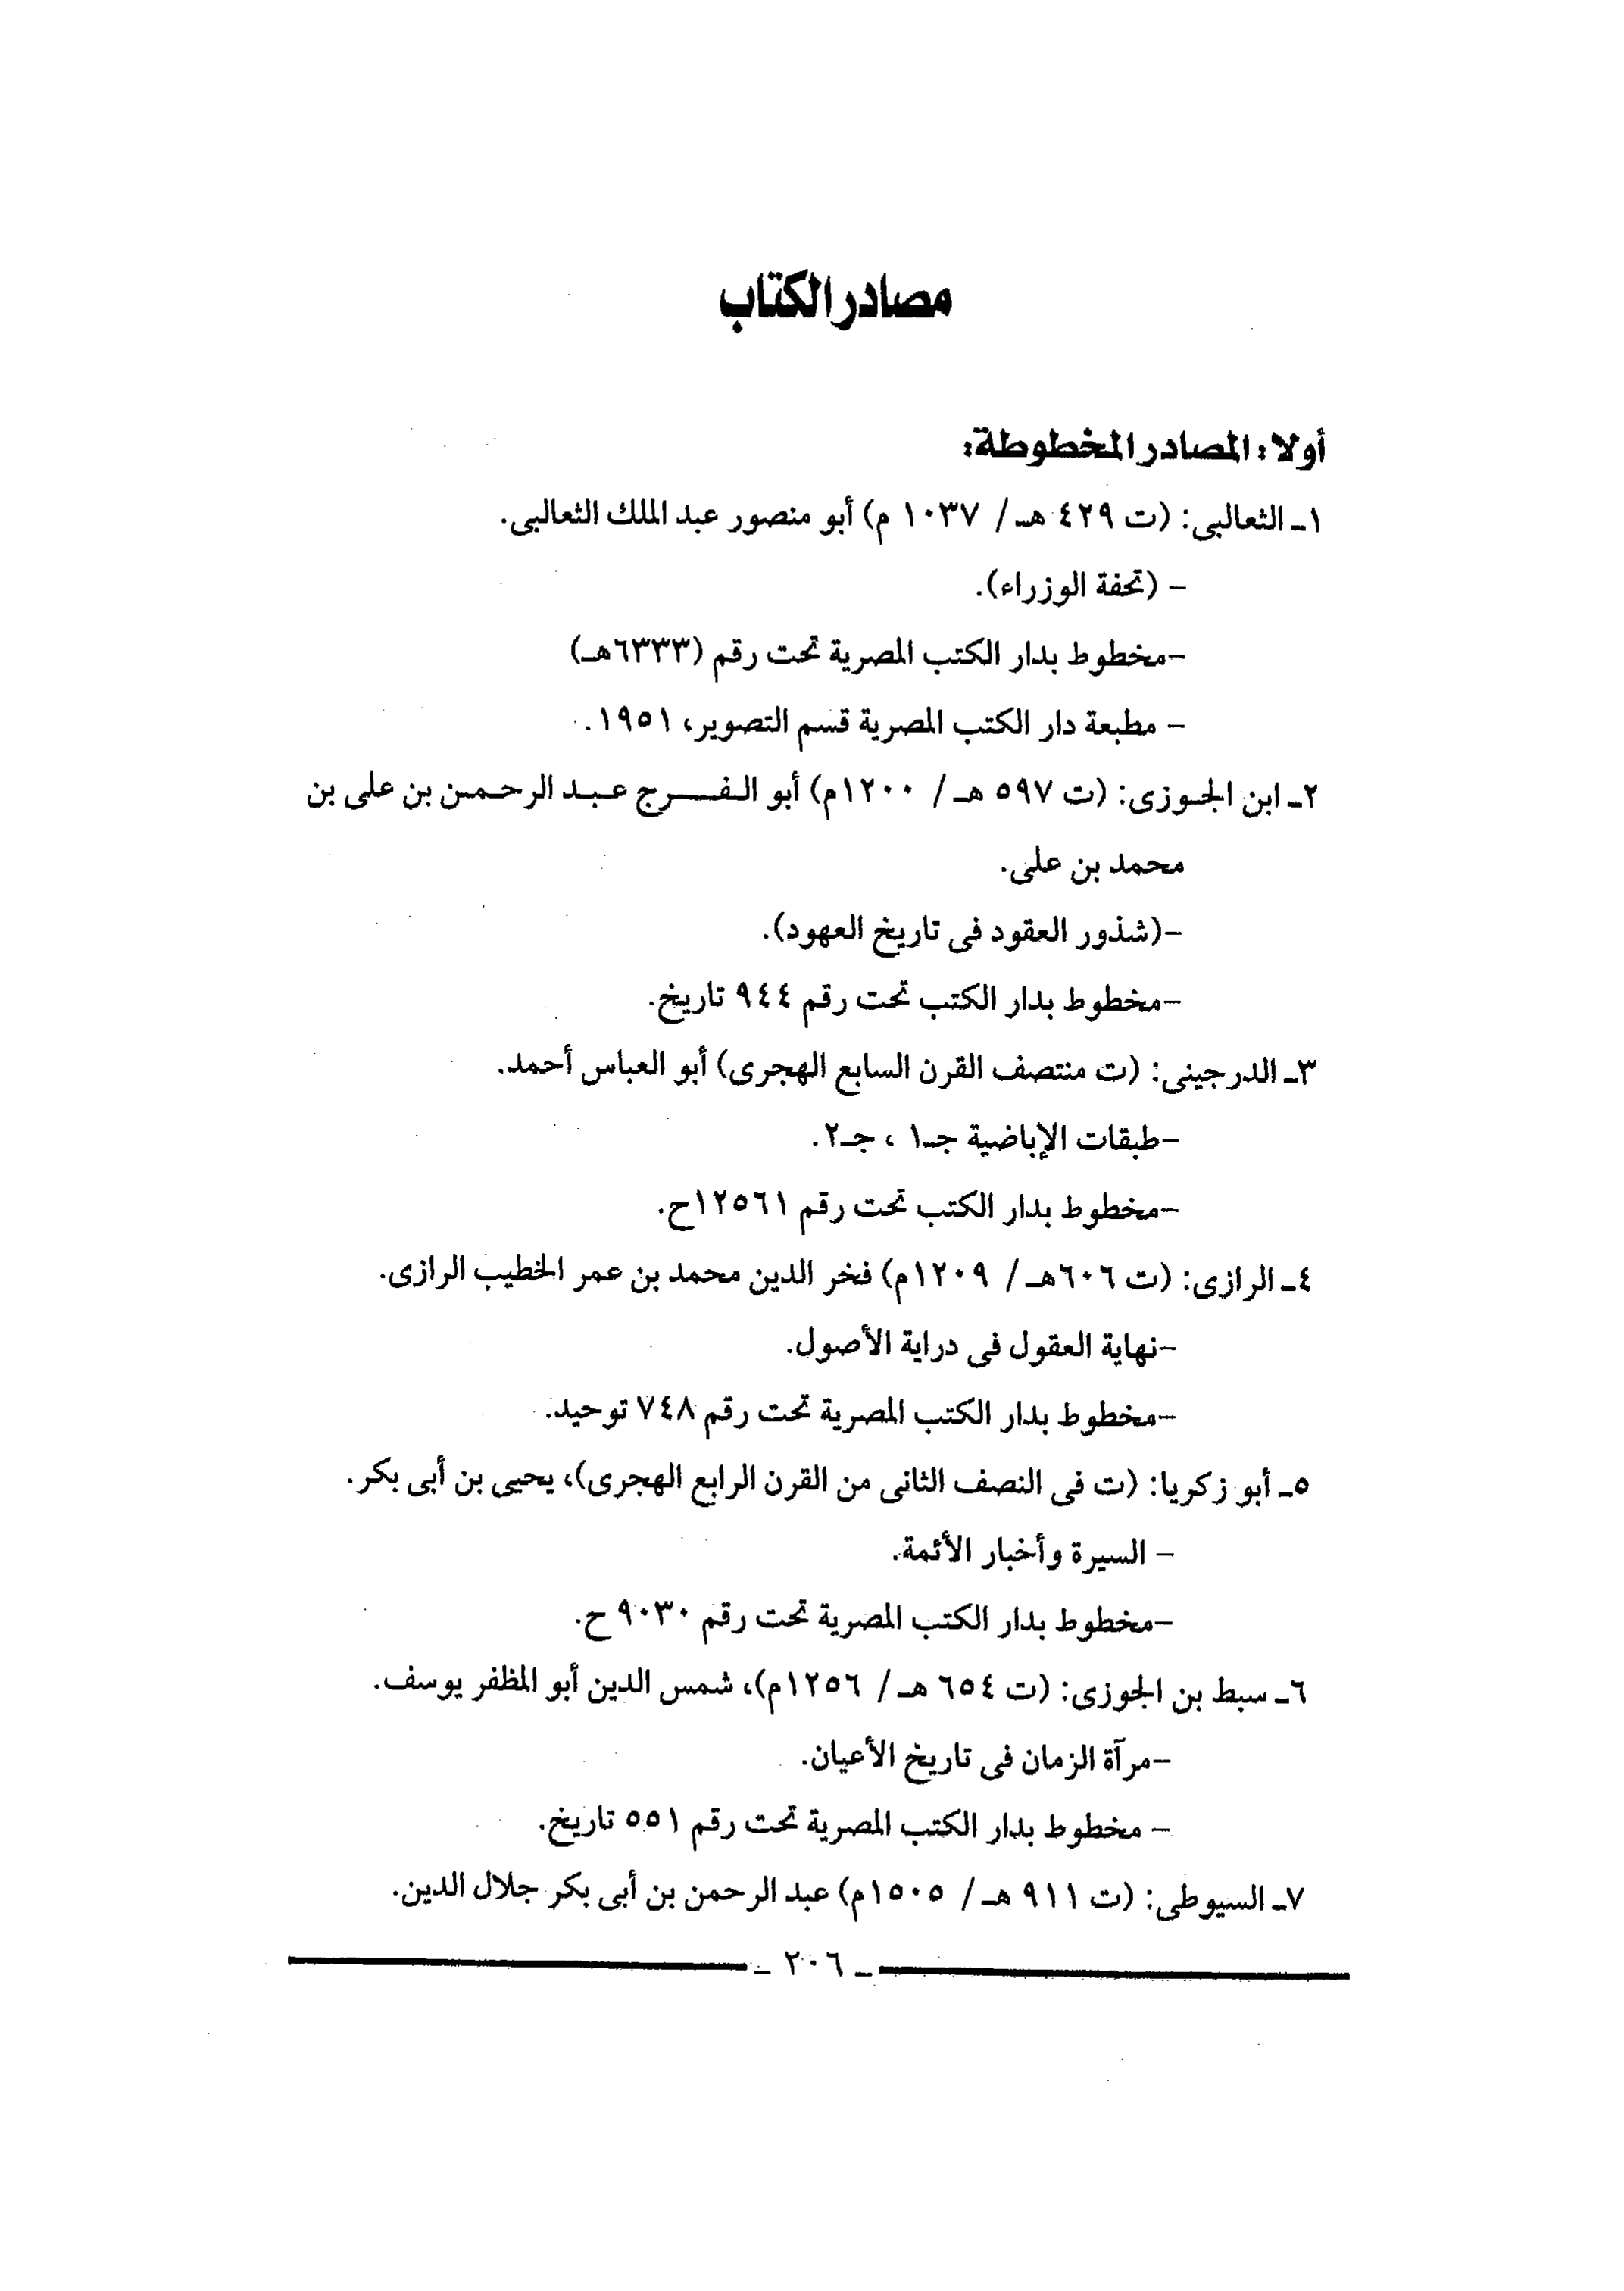 مصادر الكتاب
أولا: المصادر المخطوطة:
١ـ الثعالبى: (ت ٤٢٩ هـ / ١٠٣٧ م) أبو منصور عبد الملك الثعالبى.
- (تحفة الوزراء).
-مخطوط بدار الكتب المصرية تحت رقم (٦٣٣٣هـ)
- مطبعة دار الكتب المصرية قسم التصوير، ١٩٥١.
٢ـ ابن الجوزى: (ت ٥٩٧ هـ / ١٢٠٠م) أبو الفرج عبد الرحمن بن على بن
محمد بن على.
-(شذور العقود فى تاريخ العهود).
-مخطوط بدار الكتب تحت رقم ٩٤٤ تاريخ.
٣ـ الدرجينى: (ت منتصف القرن السابع الهجرى) أبو العباس أحمد.
-طبقات الإباضية جـ١ ، جـ٢.
-مخطوط بدار الكتب تحت رقم ١٢٥٦١ح.
٤ـ الرازى: (ت ٦٠٦هـ / ١٢٠٩م) فخر الدين محمد بن عمر الخطيب الرازى.
-نهاية العقول فى دراية الأصول.
-مخطوط بدار الكتب المصرية تحت رقم ٧٤٨ توحيد.
٥ـ أبو زكريا: (ت فى النصف الثانى من القرن الرابع الهجرى)، يحيى بن أبى بكر.
- السيرة وأخبار الأئمة.
-مخطوط بدار الكتب المصرية تحت رقم ٩٠٣٠ ح.
٦ـ سبط بن الجوزى: (ت ٦٥٤ هـ / ١٢٥٦م)، شمس الدين أبو المظفر يوسف.
-مرآة الزمان فى تاريخ الأعيان.
- مخطوط بدار الكتب المصرية تحت رقم ٥٥١ تاريخ.
٧ـ السيوطى: (ت ٩١١ هـ / ١٥٠٥م) عبد الرحمن بن أبى بكر جلال الدين.
ـ ٢٠٦ ـ